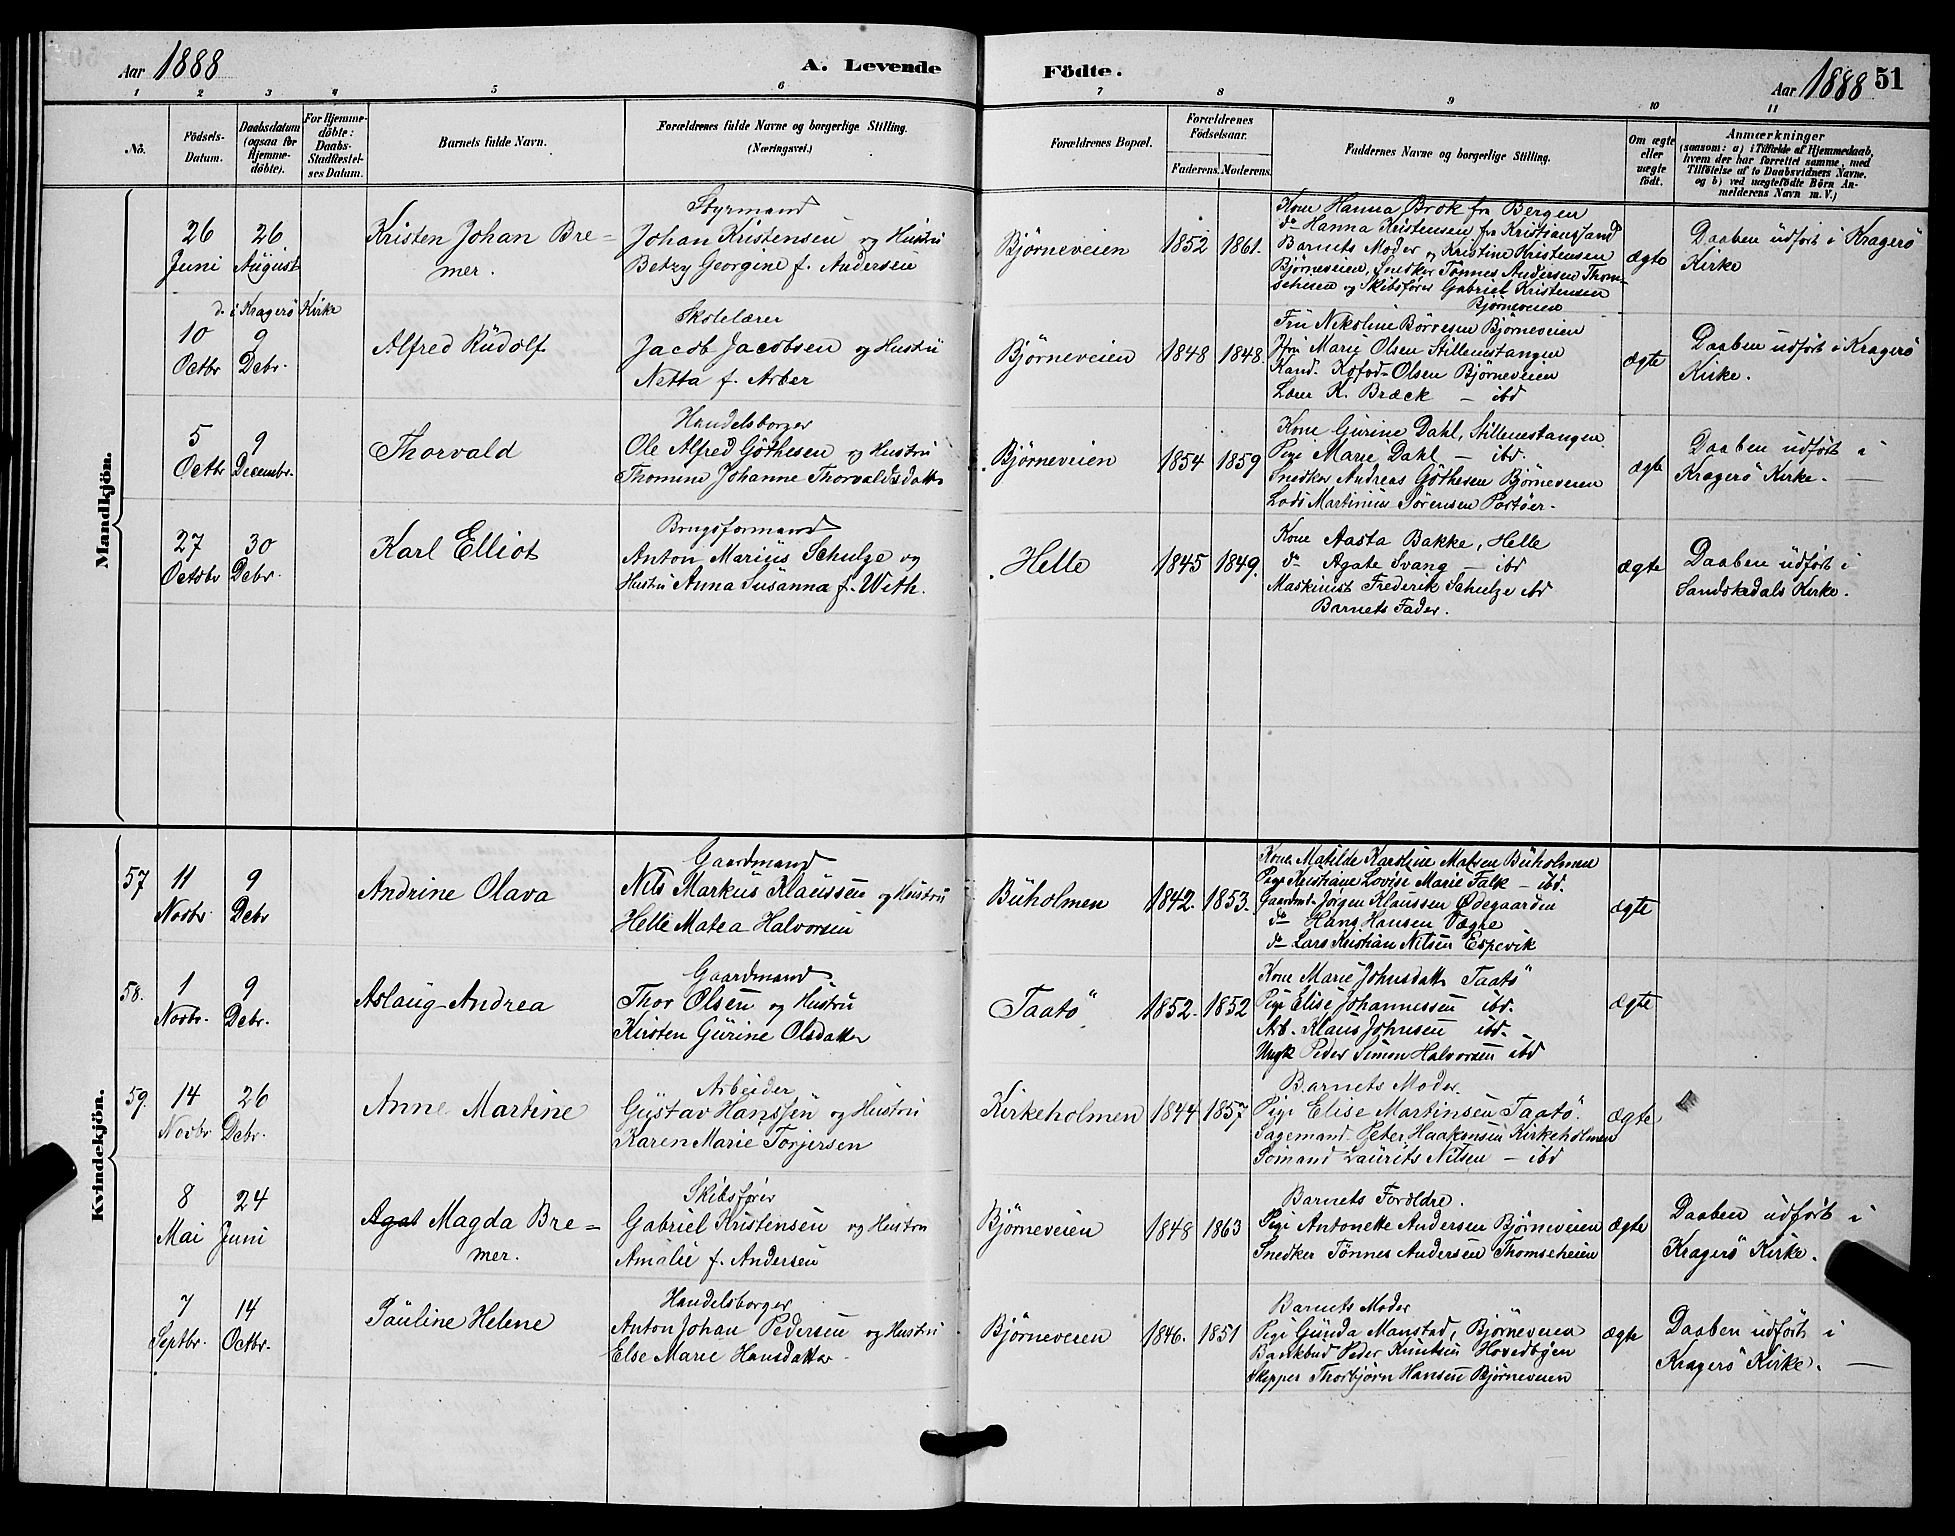 Aar 1888
A. Levende
Födte.
Aar 1888 51
1 2 3 4 5 6 7 8 9 10 11
No.
Födsels-
Datum.
Daabsdatum
(ogsaa for
Hjemme-
döbte).
For Hjemme-
döbte:
Daabs-
Stadfæstel-
ses Datum.
Barnets fulde Navn.
Forældrenes fulde Navne og borgerlige Stilling.
(Næringsvei.)
Forældrenes Bopæl.
Forældrenes
Födselsaar.
Faderens. Moderens.
Faddernes Navne og borgerlige Stilling.
Om ægte
eller
uægte
födt.
Anmærkninger
(saasom: a) i Tilfælde af Hjemmedaab,
hvem der har forrettet samme, med
Tilföielse af to Daabsvidners Navne,
og b) ved uægtefödte Börn An-
melderens Navn m. V.)
Mandkjön.
26
Juni
26
August
Kristen Johan Bre-
mer.
Styrmand
Johan Kristensen og Hustru
Betzy Georgine f. Andersen
Bjørneveien
1852 1861.
Kone Hanna Brok fra Bergen
do Hanna Kristensen fra Kristiansand
Barnets Moder og Kristine Kristensen
Bjørneveien, Snedker Tønnes Andersen Thom-
seheien og Skibsfører Gabriel Kristensen
Bjørneveien
ægte
Daaben udført i Kragerö
Kirke
d. i Kragerö Kirke
10
Octbr
9
Debr.
Alfred Rudolf
Skolelærer
Jacob Jacobsen og Hustru
Netta f. Arber
Bjørneveien
1848 1848.
Fru Nikoline Börresen Bjørneveien
Jfru Marie Olsen Stillenestangen
Kand. Kofod-Olsen Bjørneveien
Lærer K. Bræck — ibd
ægte
Daaben udført i Kragerö
Kirke.
5
Octbr
9
Decembr.
Thorvald
Handelsborger
Ole Alfred Göthesen og Hustru
Thomine Johanne Thorvaldsdatter
Bjørneveien
1854 1859
Kone Gurine Dahl, Stillenestangen
Pige Marie Dahl — ibd.
Snedker Andreas Göthesen Bjørneveien
Lods Martinius Sörensen Portöer.
ægte
Daaben udført i
Kragerö Kirke. —
27
Octobr
30
Debr.
Karl Elliot
Brugsformand
Anton Marius Schulze og
Hustru Anna Susanna f. With.
Helle
1845 1849.
Kone Aasta Bakke, Helle
do Agate Svang — ibd
Maskinist Frederik Schulze ibd
Barnets Fader.
ægte
Daaben udført i
Sandøkedals Kirke.
Kvindekjön.
57
11
Novbr
9
Debr
Andrine Olava
Gaardmand
Nils Markus Klaussen og Hustru
Helle Matea Halvorsen
Buholmen
1842. 1853.
Kone Matilde Karoline Matsen Buholmen
Pige Kristiane Lovise Marie Falk — ibd.
Gaardmd. Jörgen Klaussen Ødegaarden
do Hans Hansen
do Lars Kristian Nilsen Espevik
ægte
58.
1
Novbr.
9
Debr.
Aslaug Andrea
Gaardmand
Thor Olsen og Hustru
Kirsten Gurine Olsdatter
Taatö
1852. 1852
Kone Marie Johnsdatter Taatö
Pige Elise Johannessen ibd.
Arb. Klaus Johnsen ibd.
Ungk Peder Simon Halvorsen ibd
ægte
59.
14
Novbr
26
Debr.
Anne Martine
Arbeider
Gustav Hanssen og Hustru
Karen Marie Torjersen
Kirkeholmen
1844 1857
Barnets Moder
Pige Elise Martinsen Taatö.
Sagemand Peter Haakensen Kirkeholmen
Sömand Laurits Nilsen — ibd
ægte
8
Mai
24
Juni
Agat Magda Bre-
mer.
Skibsfører
Gabriel Kristensen og Hustru
Amalie f. Andersen
Bjørneveien
1848 1863
Barnets Forældre.
Pige Antonette Andersen Bjørneveien
Snedker Tönnes Andersen Thomseheien
ægte
Daaben udført i
Kragerö Kirke.
7
Septbr.
14
Octbr.
Pauline Helene
Handelsborger
Anton Johan Pedersen og Hustru
Else Marie Hansdatter
Bjørneveien
1846. 1851
Barnets Moder
Pige Gunda Manstad, Bjørneveien
Bankbud Peder Knutsen Hovedbyen
Skipper Thorbjørn Hansen Bjørneveien
ægte
Daaben udført i
Kragerö Kirke. —